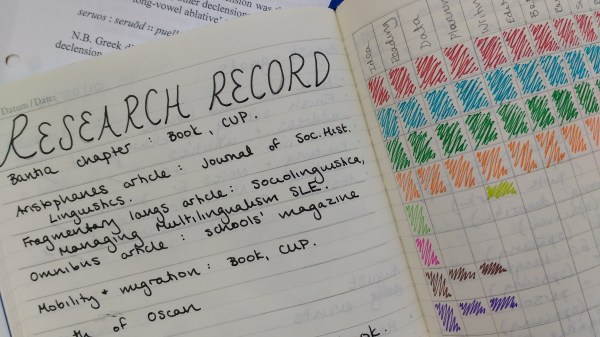 long-vowel ablative'.
seruos : seruōd :: puell
N.B. Greek di
declension
Datum / Date:
RESEARCH RECORD
Bantia chapter : Book, CUP.
Aristophanes article : Journal of Soc. Hist.
Linguistics.
Fragmentary langs article : Sociolinguistica,
Managing Multilingualism SLE.
Omnibus article : schools' magazine
Mobility + migration : Book, CUP.
of Oscan
Ideas
Reading
Data
Planni
Writin